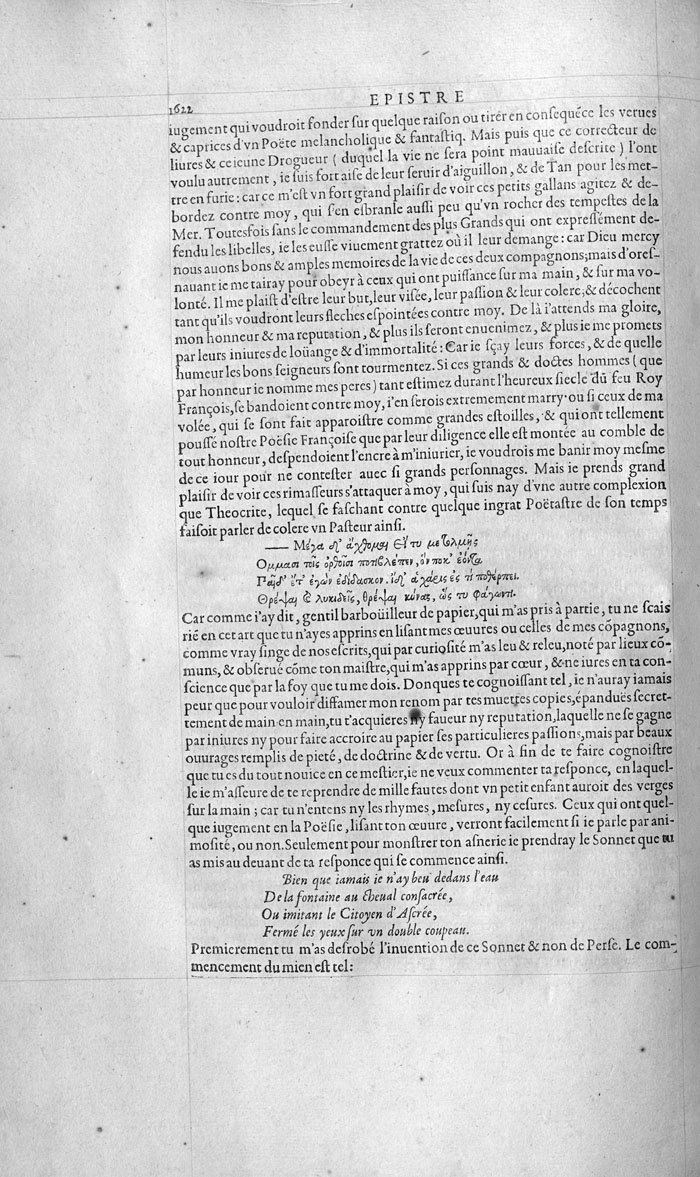 1622
EPISTRE
iugement qui voudroit fonder ſur quelque raiſon ou tirer en conſequẽce les verues
& caprices d'vn Poëte melancholique & fantaſtiq. Mais puis que ce correcteur de
liures & ce ieune Drogueur ( duquel la vie ne ſera point mauuaiſe deſcrite ) l'ont
voulu autrement, ie ſuis fort aiſe de leur ſeruir d'aiguillon, & de Tan pour les met-
tre en furie: car ce m'eſt vn fort grand plaiſir de voir ces petits gallans agitez & de-
bordez contre moy, qui s'en esbranle auſſi peu qu'vn rocher des tempeſtes de la
Mer. Toutesfois ſans le commandement des plus Grands qui ont expreſſément de-
fendu les libelles, ie les euſſe viuement grattez où il leur demange: car Dieu mercy
nous auons bons & amples memoires de la vie de ces deux compagnons; mais d'oreſ-
nauant ie me tairay pour obeyr à ceux qui ont puiſſance ſur ma main, & ſur ma vo-
lonté. Il me plaiſt d'eſtre leur but, leur viſée, leur paſſion & leur colere; & décochent
tant qu'ils voudront leurs fleches eſpointées contre moy. De là i'attends ma gloire,
mon honneur & ma reputation, & plus ils ſeront enuenimez, & plus ie me promets
par leurs iniures de loüange & d'immortalité: Car ie ſçay leurs forces, & de quelle
humeur les bons ſeigneurs ſont tourmentez. Si ces grands & doctes hommes ( que
par honneur ie nomme mes peres ) tant eſtimez durant l'heureux ſiecle du feu Roy
François, ſe bandoient contre moy, i'en ſerois extremement marry: ou ſi ceux de ma
volée, qui ſe ſont fait apparoiſtre comme grandes eſtoilles, & qui ont tellement
pouſſé noſtre Poëſie Françoiſe que par leur diligence elle eſt montée au comble de
tout honneur, deſpendoient l'encre à m'iniurier, ie voudrois me banir moy meſme
de ce iour pour ne conteſter auec ſi grands perſonnages. Mais ie prends grand
plaiſir de voir ces rimaſſeurs s'attaquer à moy, qui ſuis nay d'vne autre complexion
que Theocrite, lequel ſe faſchant contre quelque ingrat Poëtaſtre de ſon temps
faiſoit parler de colere vn Paſteur ainſi.
— Μέγα δ' ἄχθομαι εἴ τυ με τολμῆς
Ομμασι τοῖς ὀρθοῖσι ποτιβλέπεν, ὅν ποκ' ἐόντα
Παῖδ' ἔτ' ἐγὼν ἐδίδασκον. ἴδ' ἁ χάρις ἐς τί ποθέρπει.
Θρέψαι καὶ λυκιδεῖς, θρέψαι κύνας, ὥς τυ φάγωντι.
Car comme i'ay dit, gentil barboüilleur de papier, qui m'as pris à partie, tu ne ſcais
riẽ en cet art que tu n'ayes apprins en liſant mes œuures ou celles de mes cõpagnons,
comme vray ſinge de nos eſcrits, qui par curioſité m'as leu & releu, noté par lieux cõ-
muns, & obſerué cõme ton maiſtre, qui m'as apprins par cœur, & ne iures en ta con-
ſcience que par la foy que tu me dois. Donques te cognoiſſant tel, ie n'auray iamais
peur que pour vouloir diffamer mon renom par tes muettes copies, épanduës ſecret-
tement de main en main, tu t'acquieres ny faueur ny reputation, laquelle ne ſe gagne
par iniures ny pour faire accroire au papier ſes particulieres paſſions, mais par beaux
ouurages remplis de pieté, de doctrine & de vertu. Or à fin de te faire cognoiſtre
que tu es du tout nouice en ce meſtier, ie ne veux commenter ta reſponce, en laquel-
le ie m'aſſeure de te reprendre de mille fautes dont vn petit enfant auroit des verges
ſur la main; car tu n'entens ny les rhymes, meſures, ny ceſures. Ceux qui ont quel-
que iugement en la Poëſie, liſant ton œuure, verront facilement ſi ie parle par ani-
moſité, ou non. Seulement pour monſtrer ton aſnerie ie prendray le Sonnet que tu
as mis au deuant de ta reſponce qui ſe commence ainſi.
Bien que iamais ie n'ay beu dedans l'eau
De la fontaine au Cheual conſacrée,
Ou imitant le Citoyen d'Aſcrée,
Fermé les yeux ſur vn double coupeau.
Premierement tu m'as deſrobé l'inuention de ce Sonnet & non de Perſe. Le com-
mencement du mien eſt tel: